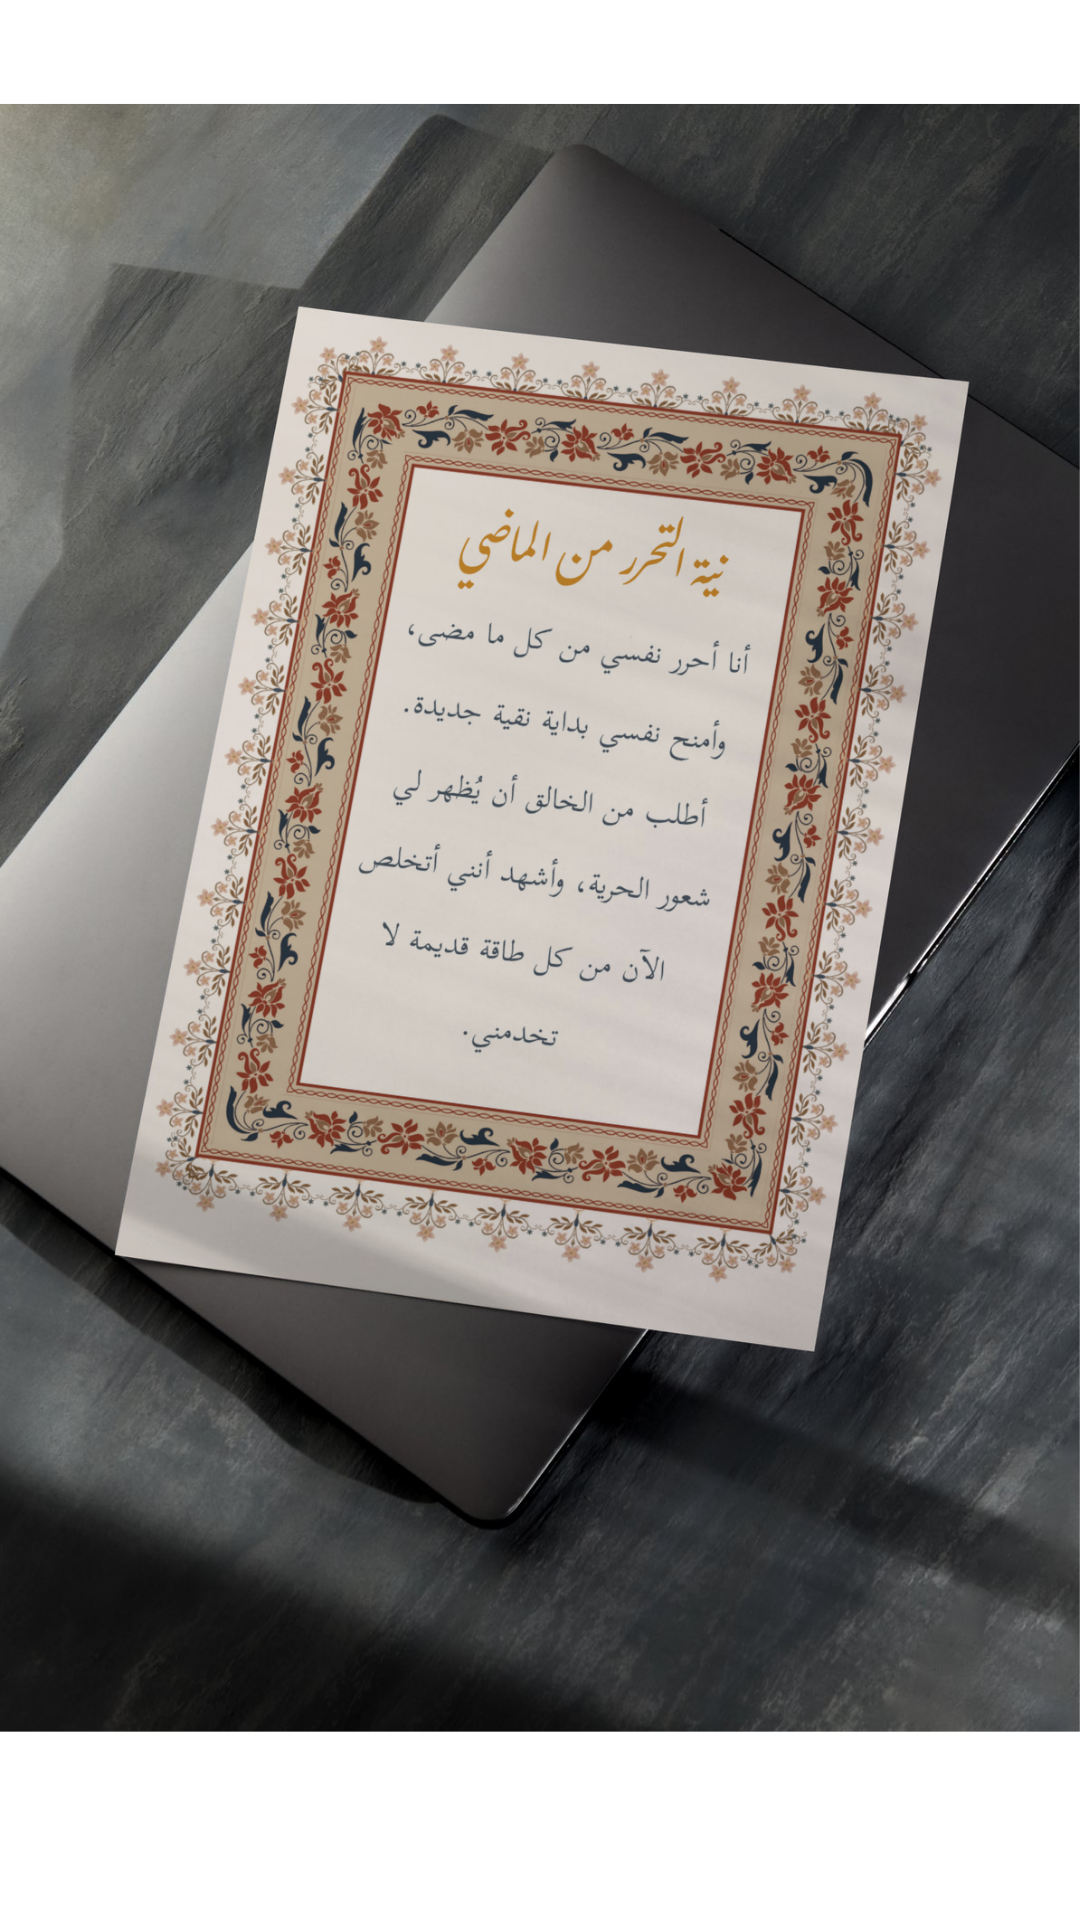 نية التحرر من الماضي
أنا أحرر نفسي من كل ما مضى،
وأمنح نفسي بداية نقية جديدة.
أطلب من الخالق أن يُظهر لي
شعور الحرية، وأشهد أنني أتخلص
الآن من كل طاقة قديمة لا
تخدمني.